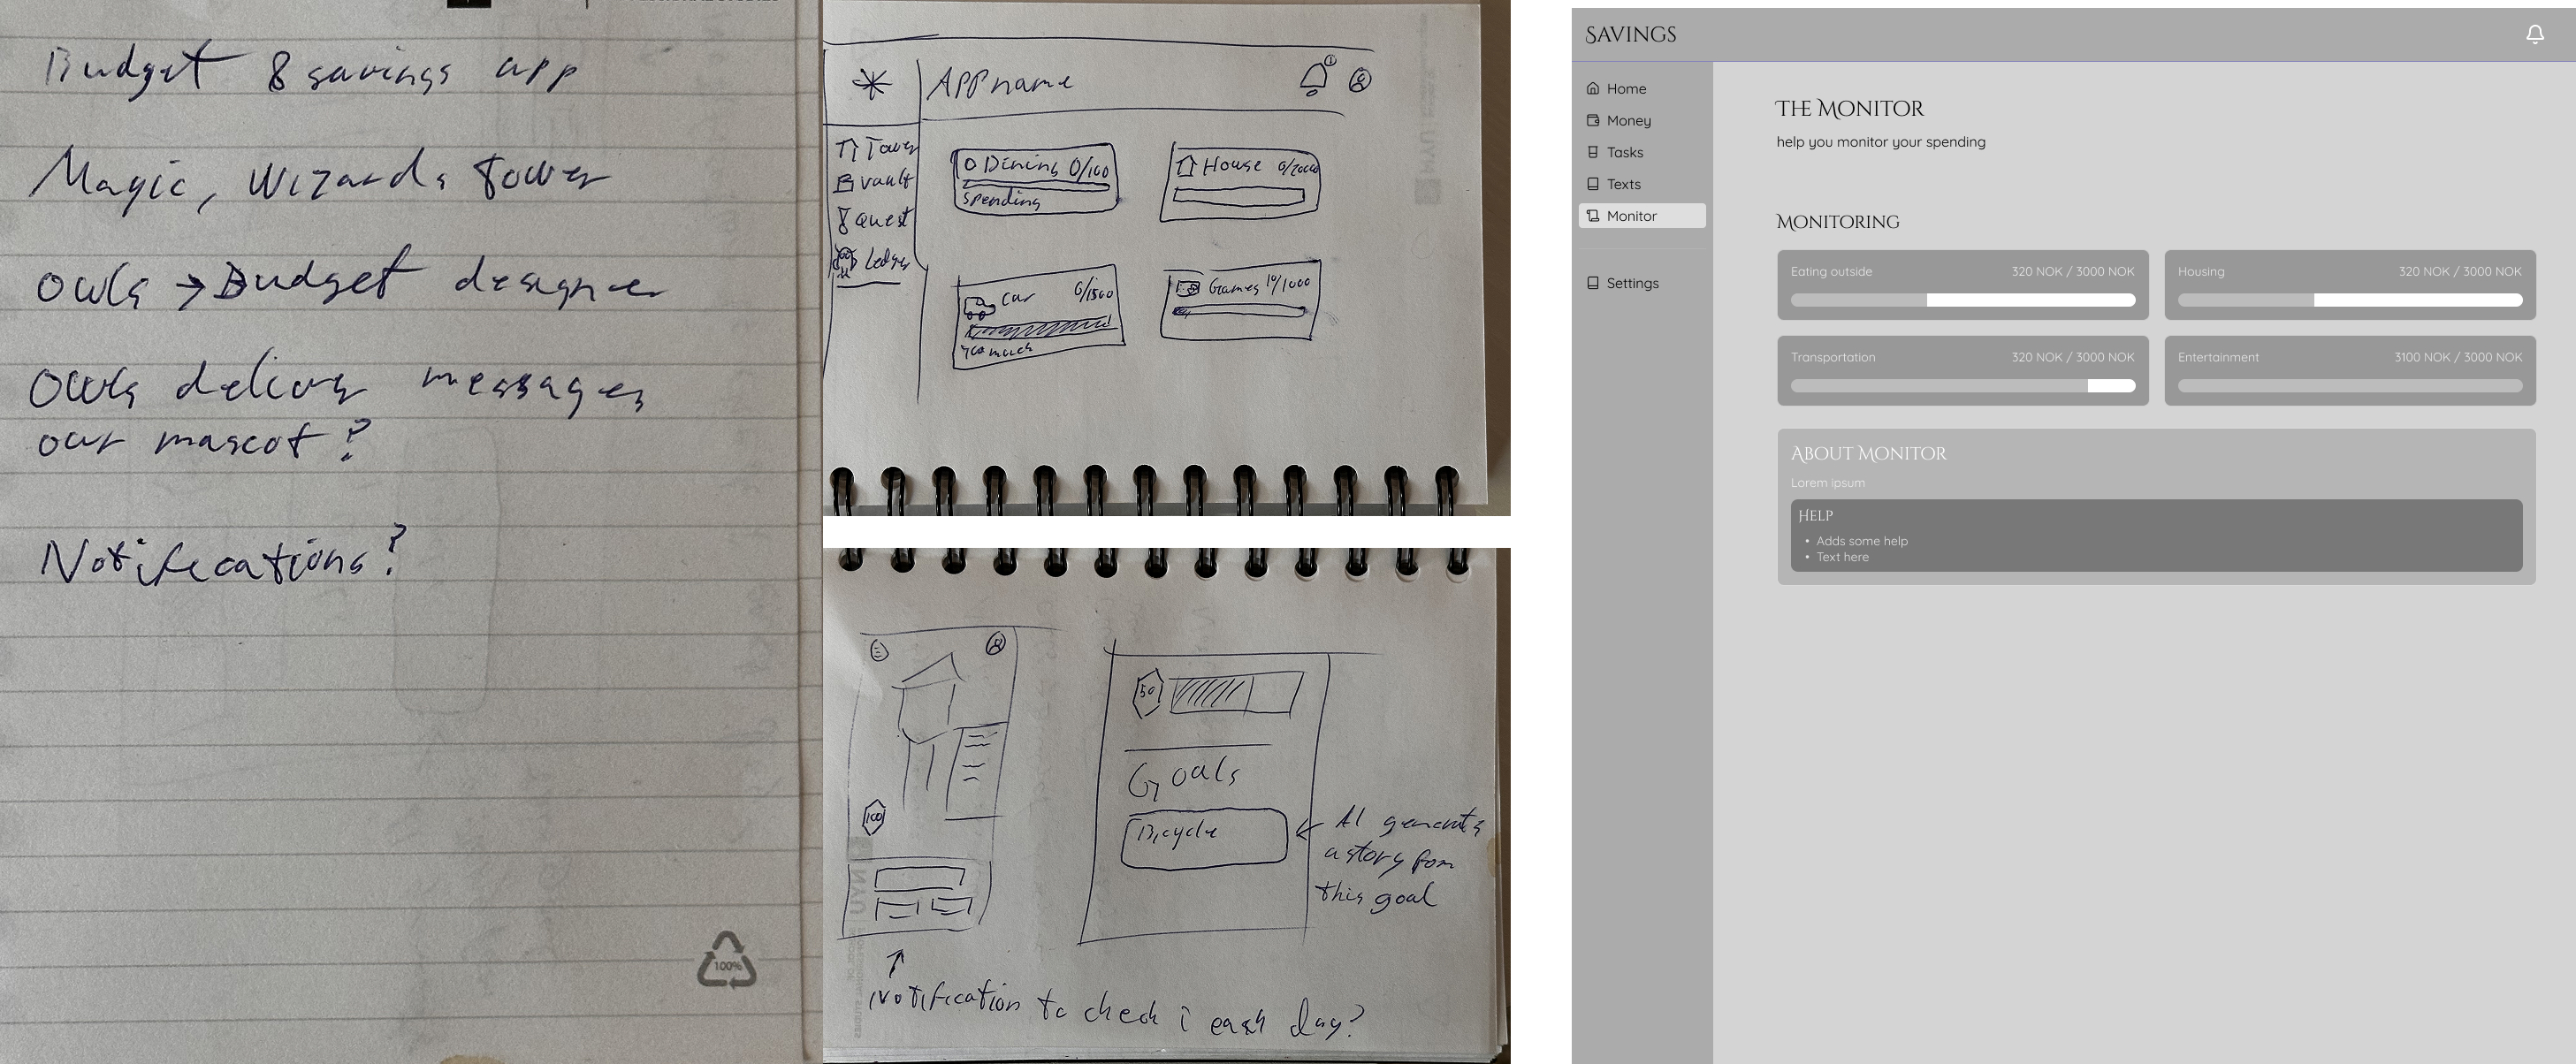 Budget & savings app
Magic, Wizards tower
Owls → Budget designer
Owls deliver messages
our mascot?
Notifications?
100%
APP name
Tower
vault
Quest
Ledger
Dining 0/100
spending
House
Car
Games
Too much
50
Goals
Bicycle
AI generates
a story from
this goal
100
Notification to check i each day?
SAVINGS
Home
Money
Tasks
Texts
Monitor
Settings
THE MONITOR
help you monitor your spending
MONITORING
Eating outside 320 NOK / 3000 NOK
Housing 320 NOK / 3000 NOK
Transportation 320 NOK / 3000 NOK
Entertainment 3100 NOK / 3000 NOK
ABOUT MONITOR
Lorem ipsum
HELP
• Adds some help
• Text here